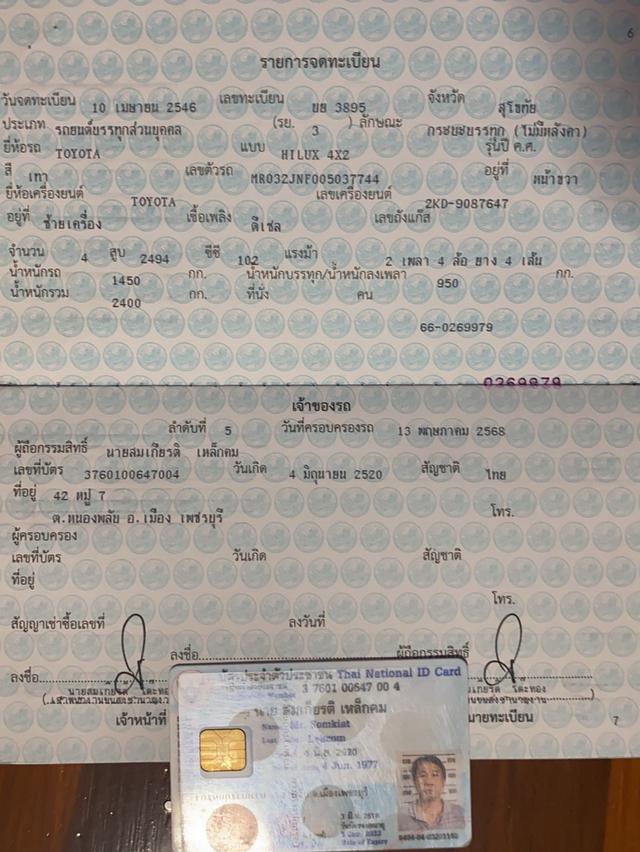 6
รายการจดทะเบียน
วันจดทะเบียน 10 เมษายน 2546 เลขทะเบียน บย 3895 จังหวัด สุโขทัย
ประเภท รถยนต์บรรทุกส่วนบุคคล (รย. 3 ) ลักษณะ กระบะบรรทุก (ไม่มีหลังคา)
ยี่ห้อรถ TOYOTA แบบ HILUX 4X2 รุ่นปี ค.ศ.
สี เทา เลขตัวรถ MR032JNF005037744 อยู่ที่ หน้าขวา
ยี่ห้อเครื่องยนต์ TOYOTA เลขเครื่องยนต์ 2KD-9087647
อยู่ที่ ซ้ายเครื่อง เชื้อเพลิง ดีเซล เลขถังแก๊ส
จำนวน 4 สูบ 2494 ซีซี 102 แรงม้า 2 เพลา 4 ล้อ ยาง 4 เส้น
น้ำหนักรถ 1450 กก. น้ำหนักบรรทุก/น้ำหนักลงเพลา 950 กก.
น้ำหนักรวม 2400 กก. ที่นั่ง คน
66-0269979
0269979
เจ้าของรถ
ลำดับที่ 5 วันที่ครอบครองรถ 13 พฤษภาคม 2568
ผู้ถือกรรมสิทธิ์ นายสมเกียรติ เหล็กคม
เลขที่บัตร 3760100647004 วันเกิด 4 มิถุนายน 2520 สัญชาติ ไทย
ที่อยู่ 42 หมู่ 7
ต.หนองพลับ อ.เมือง เพชรบุรี โทร.
ผู้ครอบครอง
เลขที่บัตร วันเกิด สัญชาติ
ที่อยู่
โทร.
สัญญาเช่าซื้อเลขที่ ลงวันที่
ลงชื่อ ผู้ถือกรรมสิทธิ์
ลงชื่อ
เจ้าหน้าที่ นายทะเบียน
7
บัตรประจำตัวประชาชน Thai National ID Card
3 7601 00647 00 4
นาย สมเกียรติ เหล็กคม
Name Mr. Somkiat
Last name
4 Jun. 1977
อ.เมืองเพชรบุรี
Date of Expiry